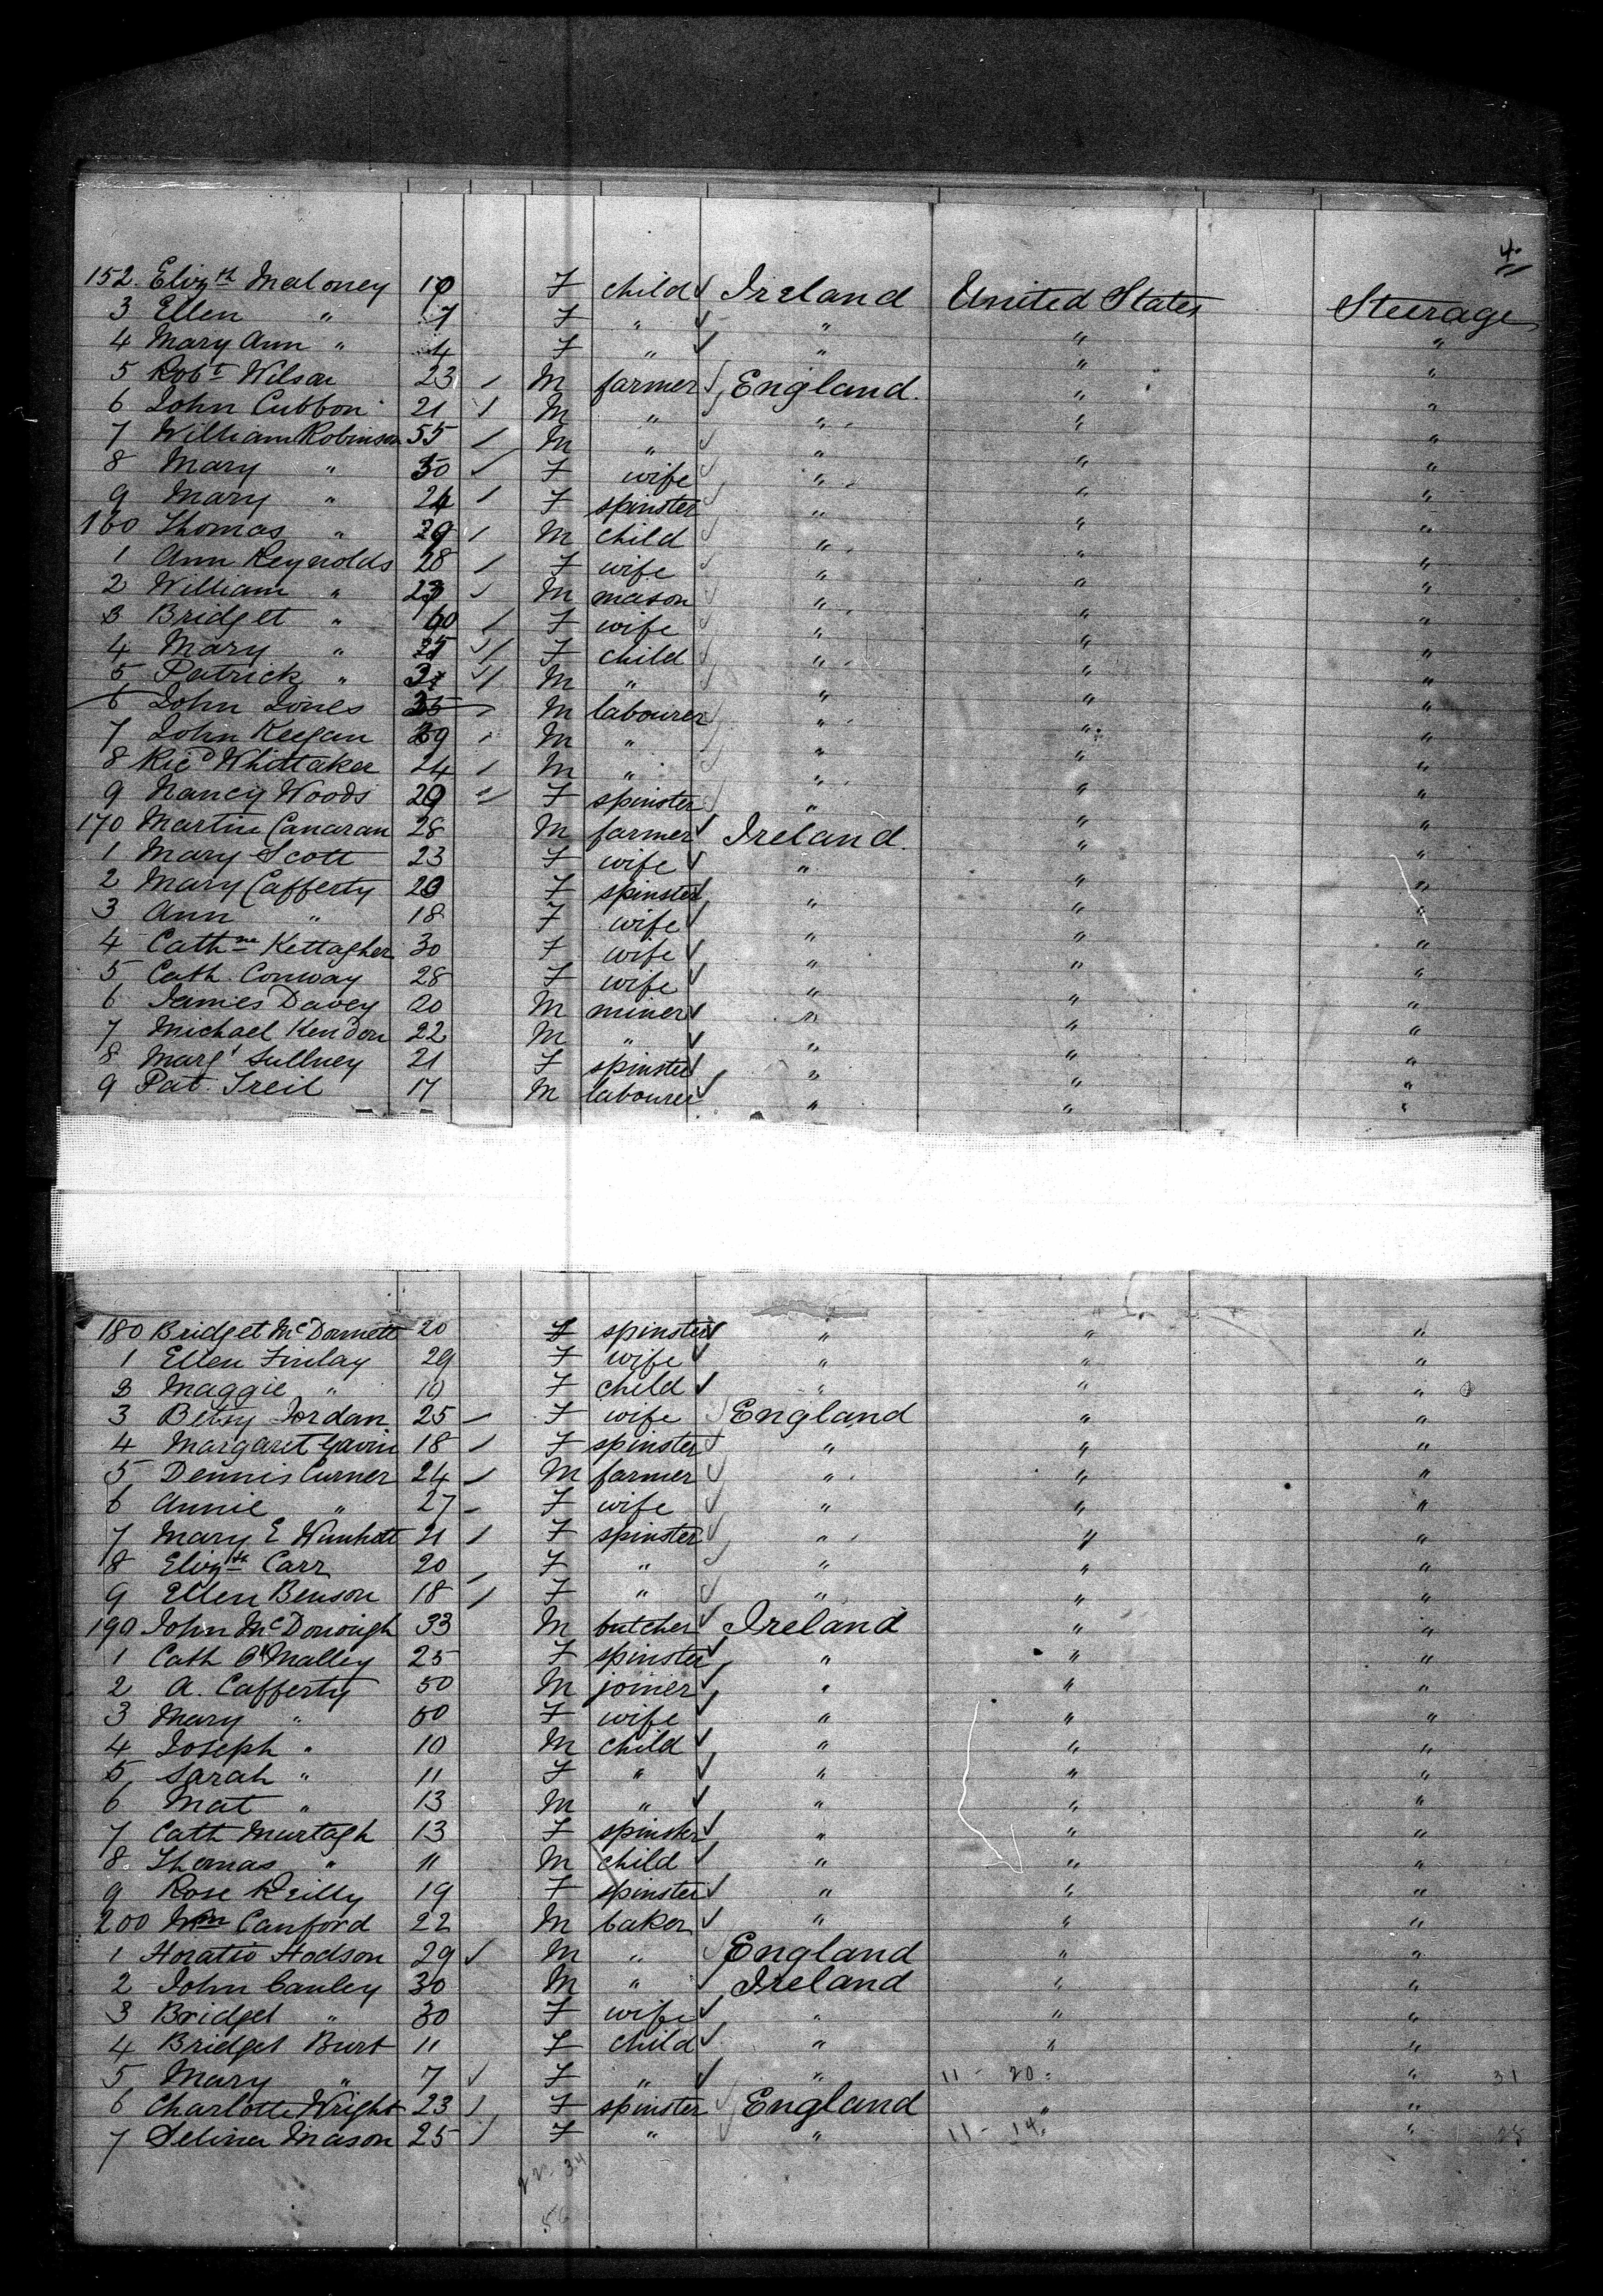 4
152 Eliz.th Maloney 10 F child Ireland United States Steerage
3 Ellen " 7 F " " " "
4 Mary Ann " 4 F " " " "
5 Robt Wilson 23 M farmer England " "
6 John Cubbon 21 M " " " "
7 William Robinson 55 M " " " "
8 Mary " 50 F wife " " "
9 Mary " 24 F spinster " " "
160 Thomas " M child " " "
1 Ann Reynolds 28 F wife " " "
2 William " M mason " " "
3 Bridget " 60 F wife " " "
4 Mary " F child " " "
5 Patrick " M " " " "
6 John Jones 35 M labourer " " "
7 John Keegan M " " " "
8 Ricd Whittaker 24 M " " " "
9 Nancy Woods 29 F spinster " " "
170 Martin Canaran 28 M farmer Ireland " "
1 Mary Scott 23 F wife " " "
2 Mary Cafferty 20 F spinster " " "
3 Ann " 18 F wife " " "
4 Cathne Kettagher 30 F wife " " "
5 Cath. Conway 28 F wife " " "
6 James Davey 20 M miner " " "
7 Michael Kendon 22 M " " " "
8 Margt Sullney 21 F spinster " " "
9 Pat. Treil 17 M labourer " " "
180 Bridget McDonnott 20 F spinster " " "
1 Ellen Finlay 29 F wife " " "
3 Maggie " 10 F child " " "
3 Betsy Jordan 25 F wife England " "
4 Margaret Gavin 18 F spinster " " "
5 Dennis Curner 24 M farmer " " "
6 Annie " 27 F wife " " "
7 Mary E 21 F spinster " " "
8 Eliz.th Carr 20 F " " " "
9 Ellen Benson 18 F " " " "
190 John McDonough 33 M butcher Ireland " "
1 Cath O'Malley 25 F spinster " " "
2 A. Cafferty 50 M joiner " " "
3 Mary " 50 F wife " " "
4 Joseph " 10 M child " " "
5 Sarah " 11 F " " " "
6 Mat " 13 M " " " "
7 Cath Murtagh 13 F spinster " " "
8 Thomas " 11 M child " " "
9 Rose Reilly 19 F spinster " " "
200 Wm Canford 22 M baker " " "
1 Horatio Hodson 29 M " England " "
2 John Canley 30 M " Ireland " "
3 Bridget " 30 F wife " " "
4 Bridget Burt 11 F child " " "
5 Mary " 7 F " " 11 - 20 " 31
6 Charlotte Wright 23 F spinster England " "
7 Selina Mason 25 F " " 11 - 14 "
22 34
56